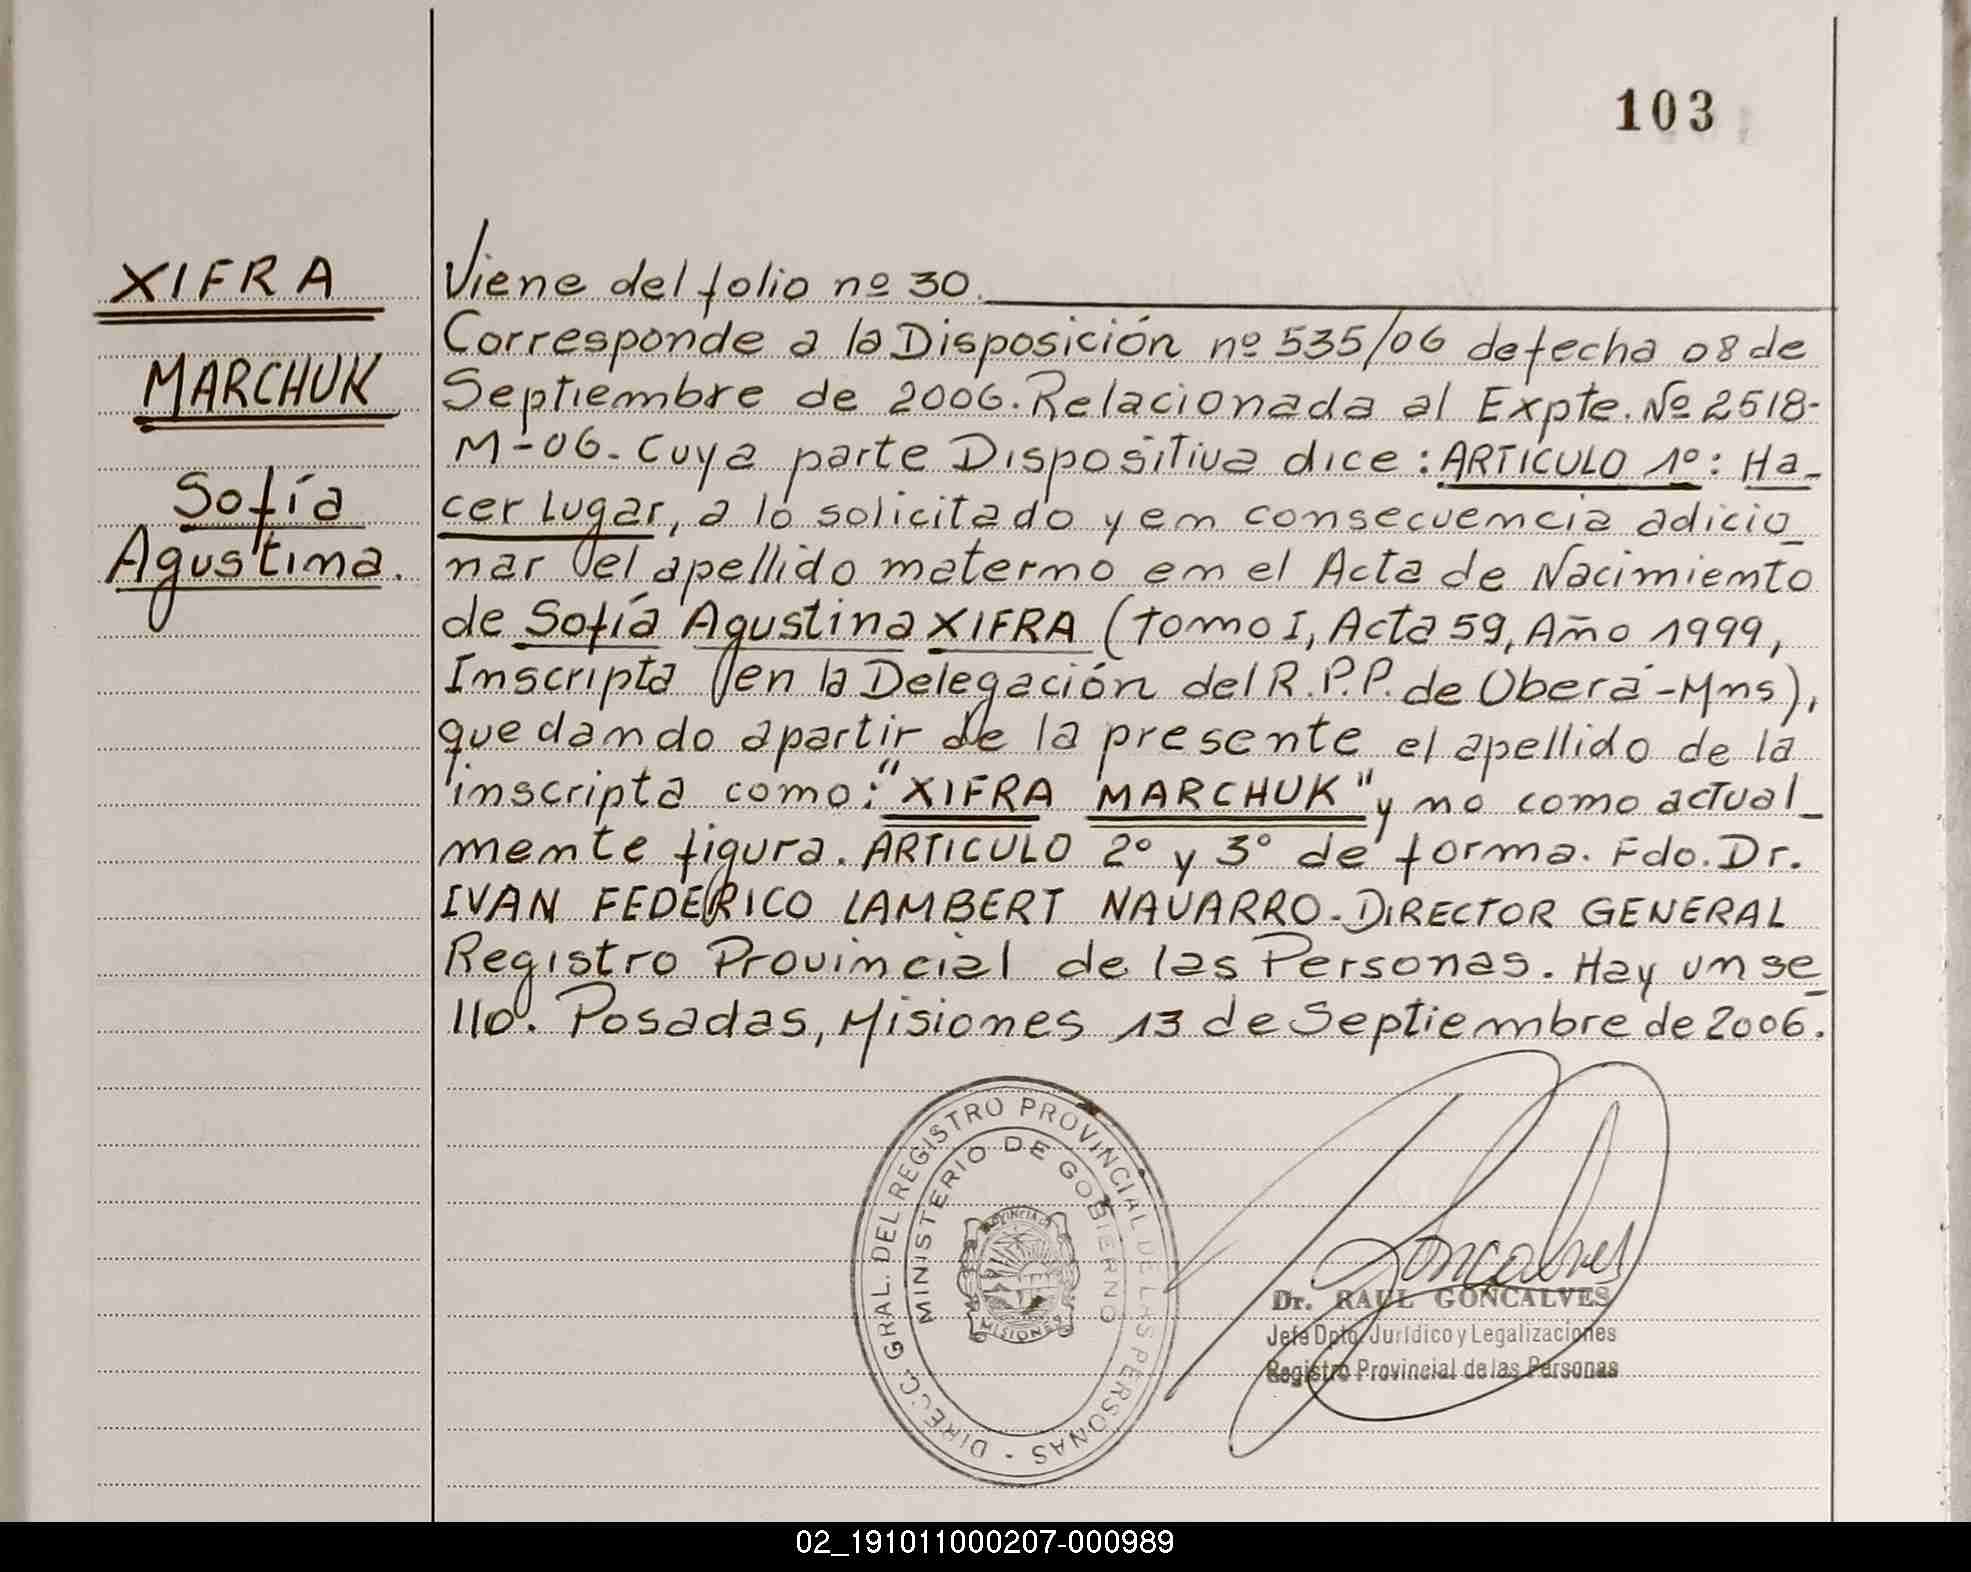 103
XIFRA
MARCHUK
Sofía
Agustina.
Viene del folio nº 30.
Corresponde a la Disposición nº 535/06 de fecha 08 de
Septiembre de 2006. Relacionada al Expte. Nº 2518-
M-06. Cuya parte Dispositiva dice: ARTICULO 1º: Ha-
cer lugar, a lo solicitado y en consecuencia adicio_
nar el apellido materno en el Acta de Nacimiento
de Sofía Agustina XIFRA (Tomo I, Acta 59, Año 1999,
Inscripta en la Delegación del R.P.P. de Oberá-Mns),
quedando apartir de la presente el apellido de la
inscripta como: "XIFRA MARCHUK" y no como actual_
mente figura. ARTICULO 2º y 3º de forma. Fdo. Dr.
IVAN FEDERICO LAMBERT NAVARRO - DIRECTOR GENERAL
Registro Provincial de las Personas. Hay un se_
llo. Posadas, Misiones 13 de Septiembre de 2006.
DIRECC. GRAL. DEL REGISTRO PROVINCIAL DE LAS PERSONAS -
MINISTERIO DE GOBIERNO
PROVINCIA DE
MISIONES
Goncalves
Dr. RAUL GONCALVES
Jefe Dpto. Jurídico y Legalizaciones
Registro Provincial de las Personas
02_191011000207-000989